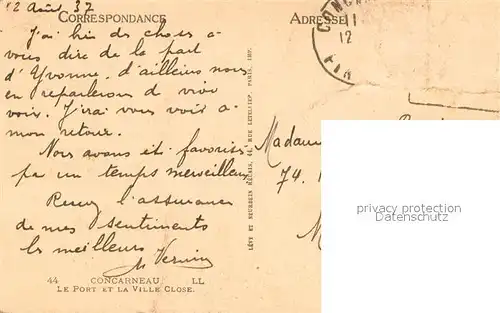 12 Août 37
CORRESPONDANCE
J'ai bien des choses à
vous dire de la part
d'Yvonne. d'ailleurs nous
en reparlerons de vive
voix. J'irai vous voir à
mon retour.
Nous avons été favorisés
par un temps merveilleux
Recevez l'assurance
de mes sentiments
les meilleurs
44 CONCARNEAU LL
LE PORT ET LA VILLE CLOSE.
LÉVY ET NEURDEIN RÉUNIS, 44, RUE LETELLIER, PARIS, IMP.
ADRESSE
12
Madame
74.
privacy protection
Datenschutz